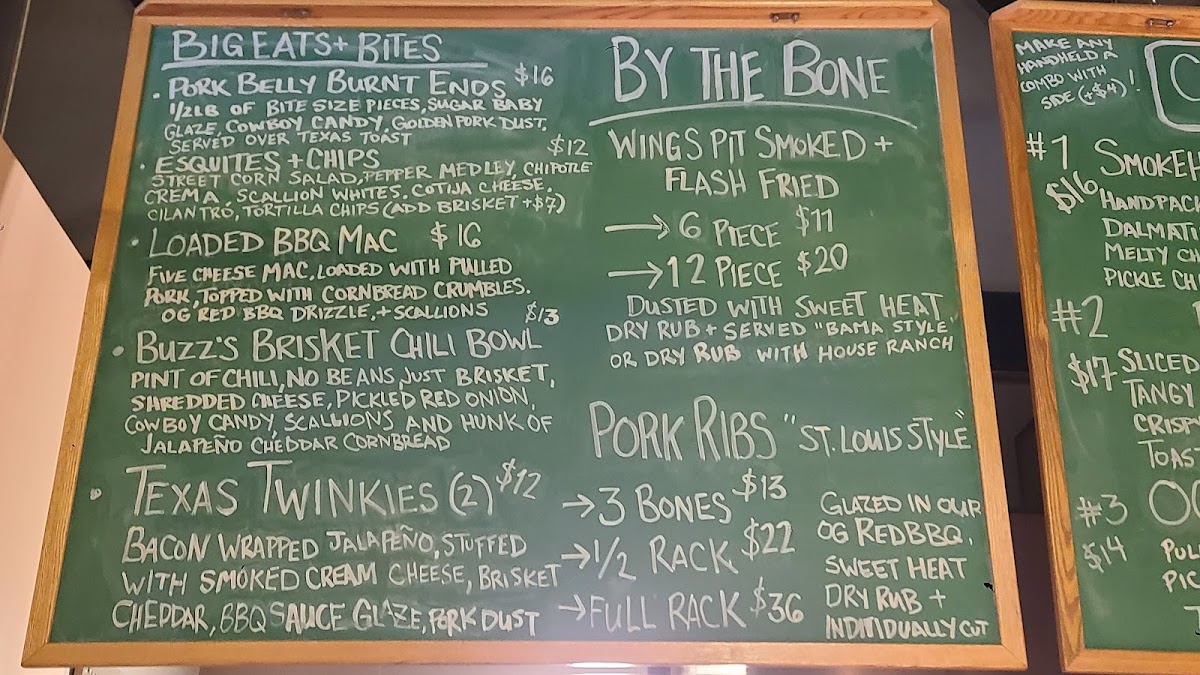 BIG EATS + BITES
• PORK BELLY BURNT ENDS $16
1/2LB OF BITE SIZE PIECES, SUGAR BABY
GLAZE, COWBOY CANDY, GOLDEN PORK DUST,
SERVED OVER TEXAS TOAST
• ESQUITES + CHIPS $12
STREET CORN SALAD, PEPPER MEDLEY, CHIPOTLE
CREMA, SCALLION WHITES, COTIJA CHEESE.
CILANTRO, TORTILLA CHIPS (ADD BRISKET +$7)
• LOADED BBQ MAC $16
FIVE CHEESE MAC, LOADED WITH PULLED
PORK, TOPPED WITH CORNBREAD CRUMBLES.
OG RED BBQ DRIZZLE, + SCALLIONS
• BUZZ'S BRISKET CHILI BOWL $13
PINT OF CHILI, NO BEANS, JUST BRISKET,
SHREDDED CHEESE, PICKLED RED ONION,
COWBOY CANDY, SCALLIONS AND HUNK OF
JALAPEÑO CHEDDAR CORNBREAD
• TEXAS TWINKIES (2) $12
BACON WRAPPED JALAPEÑO, STUFFED
WITH SMOKED CREAM CHEESE, BRISKET
CHEDDAR, BBQ SAUCE GLAZE, PORK DUST
BY THE BONE
WINGS PIT SMOKED +
FLASH FRIED
→ 6 PIECE $11
→ 12 PIECE $20
DUSTED WITH SWEET HEAT
DRY RUB + SERVED "BAMA STYLE"
OR DRY RUB WITH HOUSE RANCH
PORK RIBS "ST. LOUIS STYLE"
→ 3 BONES $13
→ 1/2 RACK $22
→ FULL RACK $36
GLAZED IN OUR
OG RED BBQ,
SWEET HEAT
DRY RUB +
INDIVIDUALLY CUT
MAKE ANY
HANDHELD A
COMBO WITH
SIDE (+$4)!
#1 SMOKEH
$16 HANDPAC
DALMATI
MELTY CH
PICKLE CH
#2
$17 SLICED
TANGY
CRISP
TOAS
#3 OG
$14 PUL
PIC